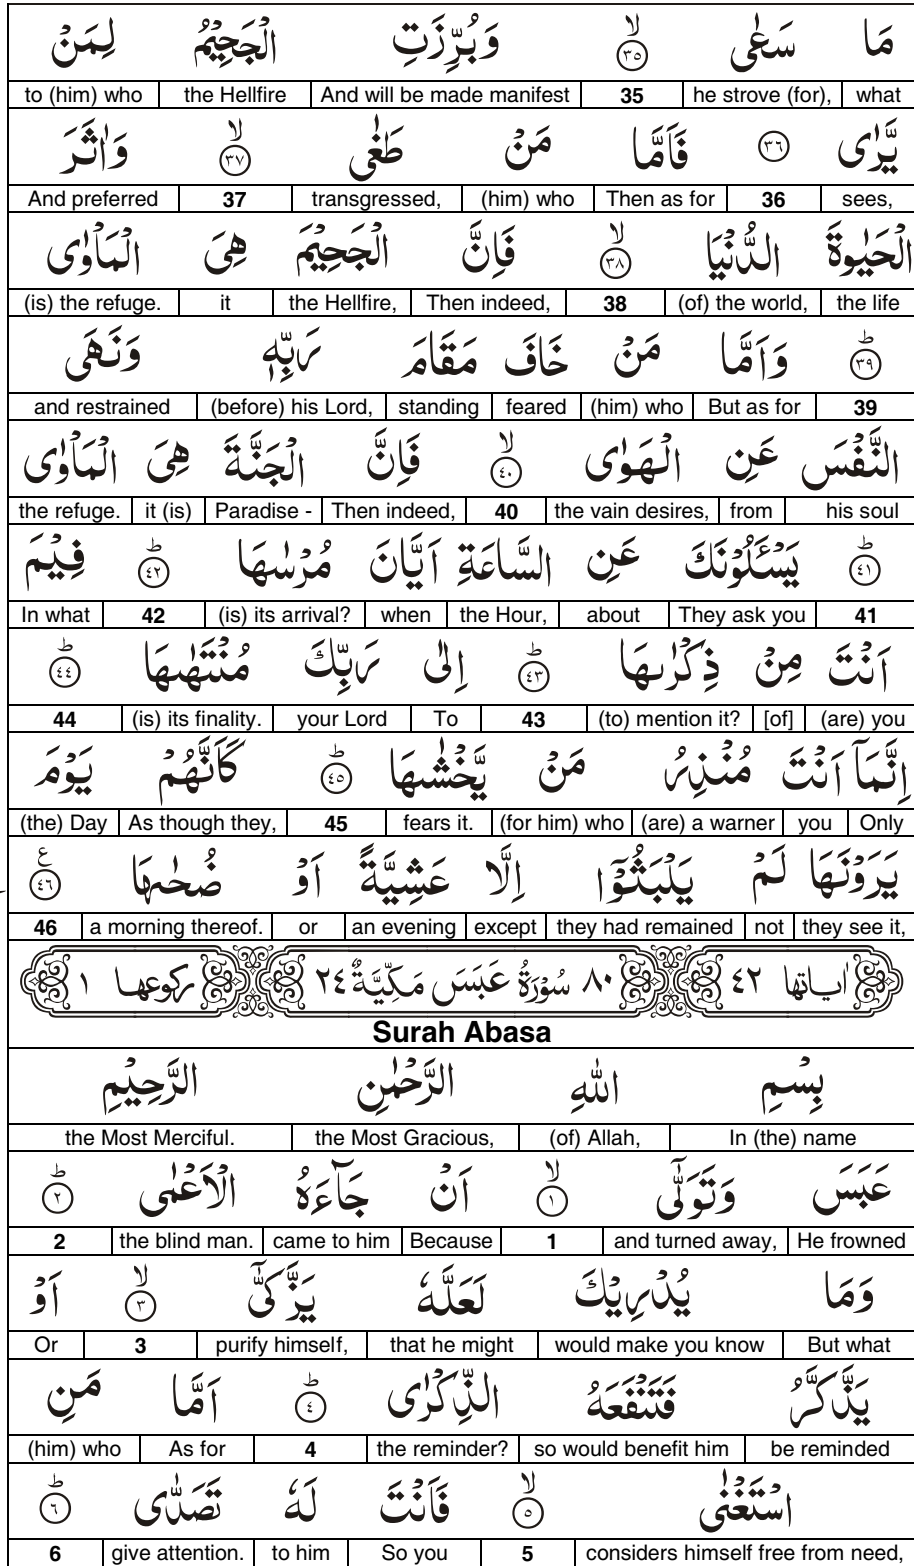 مَا سَعٰى ۙ‏﴿۳۵﴾ وَبُرِّزَتِ الْجَحِيْمُ لِمَنْ
what | he strove (for), | 35 | And will be made manifest | the Hellfire | to (him) who
يَّرٰى ﴿۳۶﴾ فَاَمَّا مَنْ طَغٰى ۙ‏﴿۳۷﴾ وَاٰثَرَ
sees, | 36 | Then as for | (him) who | transgressed, | 37 | And preferred
الْحَيٰوةَ الدُّنْيَا ۙ‏﴿۳۸﴾ فَاِنَّ الْجَحِيْمَ هِيَ الْمَاْوٰى
the life | (of) the world, | 38 | Then indeed, | the Hellfire, | it | (is) the refuge.
ؕ‏﴿۳۹﴾ وَاَمَّا مَنْ خَافَ مَقَامَ رَبِّهٖ وَنَهَى
39 | But as for | (him) who | feared | standing | (before) his Lord, | and restrained
النَّفْسَ عَنِ الْهَوٰى ۙ‏﴿٤۰﴾ فَاِنَّ الْجَنَّةَ هِيَ الْمَاْوٰى
his soul | from | the vain desires, | 40 | Then indeed, | Paradise - | it (is) | the refuge.
ؕ‏﴿٤۱﴾ يَسْـَٔلُوْنَكَ عَنِ السَّاعَةِ اَيَّانَ مُرْسٰىهَا ؕ‏﴿٤۲﴾ فِيْمَ
41 | They ask you | about | the Hour, | when | (is) its arrival? | 42 | In what
اَنْتَ مِنْ ذِكْرٰىهَا ؕ‏﴿٤۳﴾ اِلٰى رَبِّكَ مُنْتَهٰىهَا ؕ‏﴿٤٤﴾
(are) you | [of] | (to) mention it? | 43 | To | your Lord | (is) its finality. | 44
اِنَّمَاۤ اَنْتَ مُنْذِرُ مَنْ يَّخْشٰىهَا ؕ‏﴿٤۵﴾ كَاَنَّهُمْ يَوْمَ
Only | you | (are) a warner | (for him) who | fears it. | 45 | As though they, | (the) Day
يَرَوْنَهَا لَمْ يَلْبَثُوْۤا اِلَّا عَشِيَّةً اَوْ ضُحٰىهَا ع ﴿٤٦﴾
they see it, | not | they had remained | except | an evening | or | a morning thereof. | 46
اٰياتها ٤٢ ٨٠ سُوْرَةُ عَبَسَ مَكِّيَّةٌ ٢٤ ركوعها ١
Surah Abasa
بِسْمِ اللّٰهِ الرَّحْمٰنِ الرَّحِيْمِ
In (the) name | (of) Allah, | the Most Gracious, | the Most Merciful.
عَبَسَ وَتَوَلّٰٓى ۙ‏﴿۱﴾ اَنْ جَآءَهُ الْاَعْمٰى ؕ‏﴿۲﴾
He frowned | and turned away, | 1 | Because | came to him | the blind man. | 2
وَمَا يُدْرِيْكَ لَعَلَّهٗ يَزَّكّٰٓى ۙ‏﴿۳﴾ اَوْ
But what | would make you know | that he might | purify himself, | 3 | Or
يَذَّكَّرُ فَتَنْفَعَهُ الذِّكْرٰى ؕ‏﴿٤﴾ اَمَّا مَنِ
be reminded | so would benefit him | the reminder? | 4 | As for | (him) who
اسْتَغْنٰى ۙ‏﴿۵﴾ فَاَنْتَ لَهٗ تَصَدّٰى ؕ‏﴿٦﴾
considers himself free from need, | 5 | So you | to him | give attention. | 6